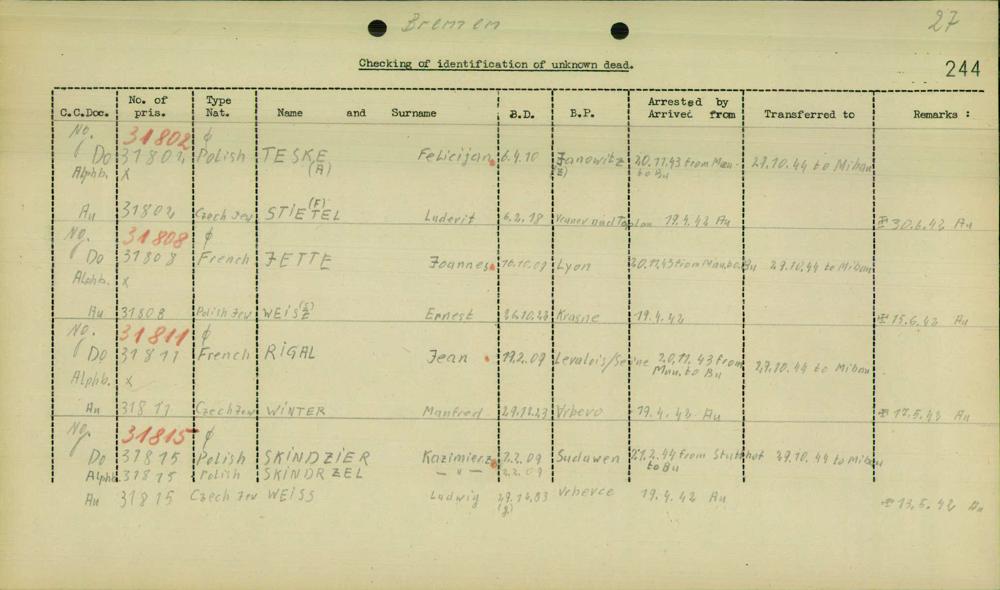 Bremen 27
Checking of identification of unknown dead. 244
C.C.Doc. No. of pris. Type Nat. Name and Surname B.D. B.P. Arrested by Arrived from Transferred to Remarks :
No. 31802 ¢
Do 31802 Polish TESKE Felicijan 6.4.10 Janowitz 20.11.43 from Mau- 29.10.44 to Mibau
Alphb. x (A) (E) to Bu
(F)
Au 31802 Czech Jew STIETEL Ludevit 6.2.18 Vranov nad Toplou 19.4.42 Au 30.6.42 Au
No. 31808 ¢
Do 31808 French JETTE Joannes 10.10.09 Lyon 20.11.43 from Mau. to Bu 29.10.44 to Mibau
Alphb. x
Au 31808 Polish Jew WEISS Ernest 26.10.22 Krasne 19.4.42 15.6.42 Au
No. 31811 ¢
Do 31811 French RIGAL Jean 19.2.09 Levalois/Seine 20.11.43 from 29.10.44 to Mibau
Mau. to Bu
Alphb. x
Au 31811 Czech Jew WINTER Manfred 29.12.23 Vrbovo 19.4.42 Au 17.5.42 Au
No. 31815 ¢
Do 31815 Polish SKINDZIER Kazimierz 2.2.09 Sudawen from Stutthof 29.10.44 to Mibau
Alphb 31815 Polish SKINDRZEL — " — 2.2.09 to Bu
Au 31815 Czech Jew WEISS Ludwig Vrbovce 19.4.42 Au 13.5.42 Au
(g)